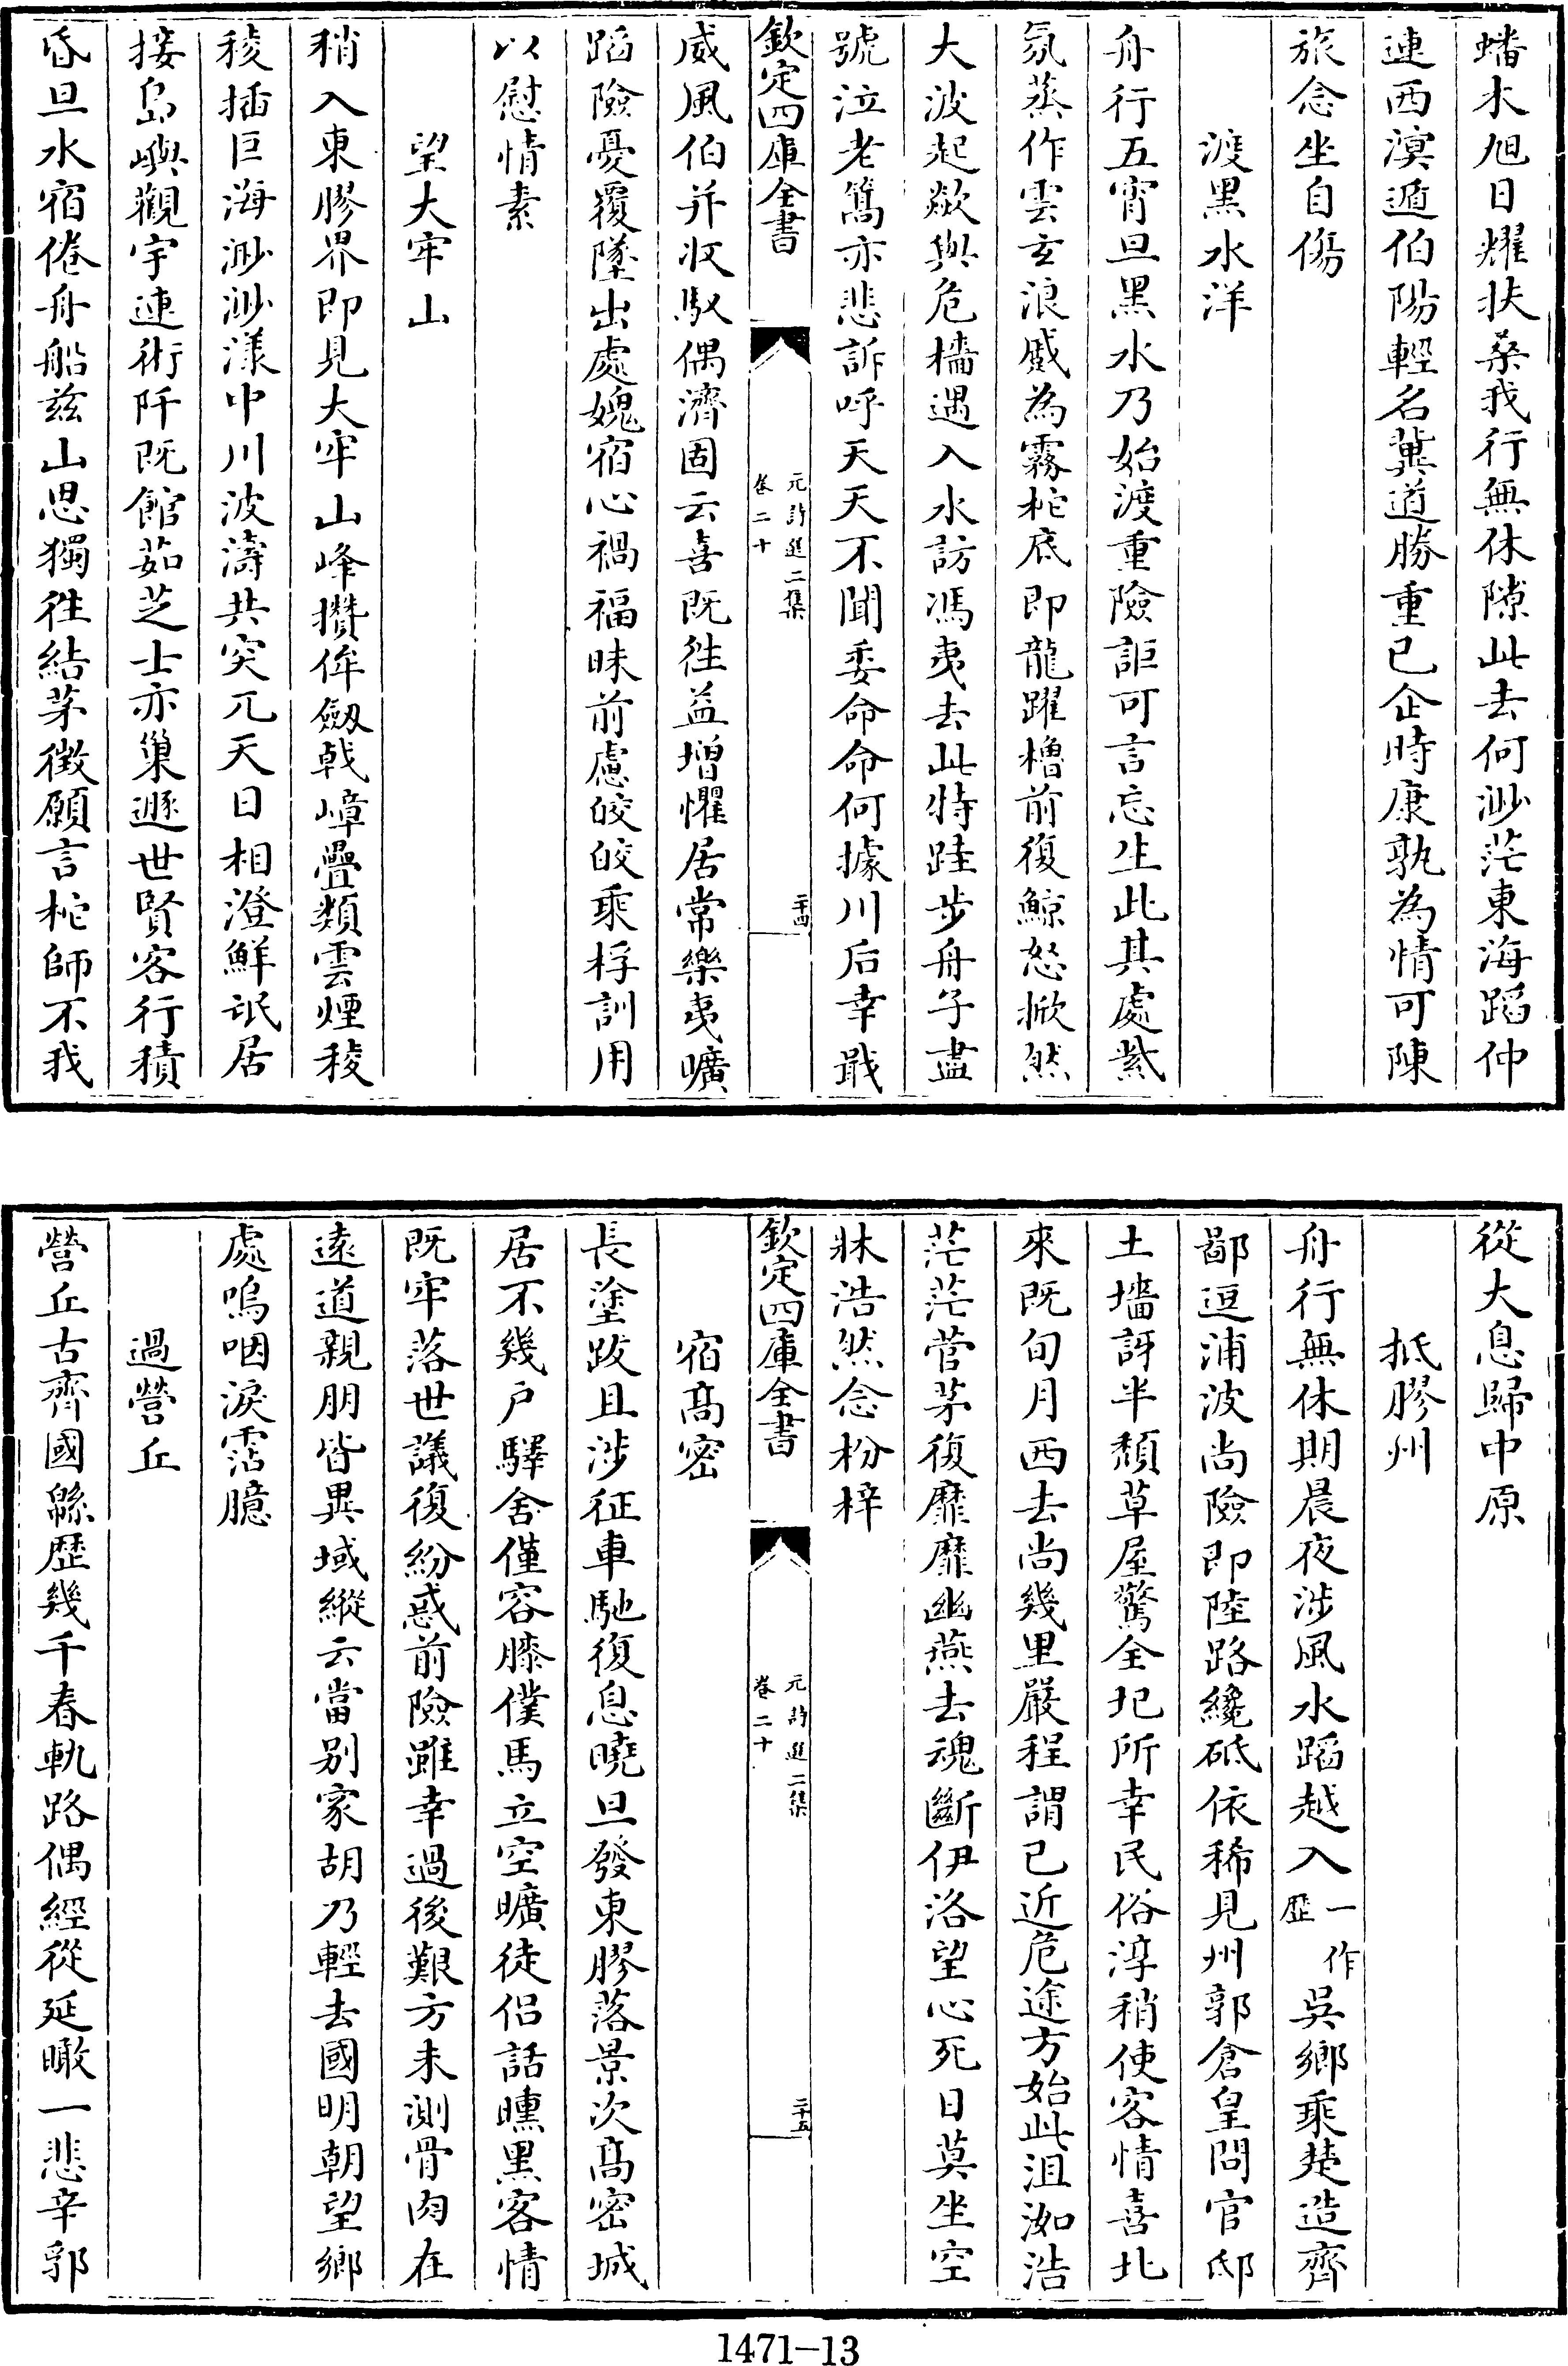 蟠木旭日耀扶桑我行無休隙此去何渺茫東海蹈仲
連西漠遁伯陽輕名冀道勝重已企時康孰為情可陳
旅念坐自傷
渡黑水洋
舟行五宵旦黑水乃始渡重險詎可言忘生此其處紫
氛蒸作雲玄浪蹙為霧柁底即龍躍櫓前復鯨怒掀然
大波起歘與危檣遇入水訪馮夷去此特跬步舟子盡
號泣老篙亦悲訴呼天天不聞委命命何據川后幸戢
欽定四庫全書
元詩選二集
卷二十
二十四
威風伯并收馭偶濟固云喜既徃益增懼居常樂夷曠
蹈險憂覆墜出處媿宿心禍福昧前慮皎皎乘桴訓用
以慰情素
望大牢山
稍入東膠界即見大牢山峰攢侔劔戟嶂疊類雲煙稜
稜插巨海渺渺漾中川波濤共突兀天日相澄鮮氓居
接島嶼觀宇連術阡既館茹芝士亦巢遯世賢客行積
昏旦水宿倦舟船兹山思獨徃結茅徴願言柁師不我
從大息歸中原
抵膠州
舟行無休期晨夜涉風水蹈越入一作歴吳鄉乘楚造齊
鄙逗浦波尚險即陸路纔砥依稀見州郭倉皇問官邸
土墻訝半頹草屋驚全圮所幸民俗淳稍使客情喜北
來既旬月西去尚幾里嚴程謂已近危途方始此沮洳浩
茫茫菅茅復靡靡幽燕去魂斷伊洛望心死日莫坐空
牀浩然念枌梓
欽定四庫全書
元詩選二集
卷二十
二十五
宿髙密
長塗跋且涉征車馳復息曉旦發東膠落景次髙密城
居不幾户驛舍僅容膝僕馬立空曠徒侣話曛黑客情
既牢落世議復紛惑前險雖幸過後艱方未測骨肉在
遠道親朋皆異域縱云當别家胡乃輕去國明朝望鄉
處嗚咽淚霑臆
過營丘
營丘古齊國緜歴幾千春軌路偶經從延瞰一悲辛郛
1471-13